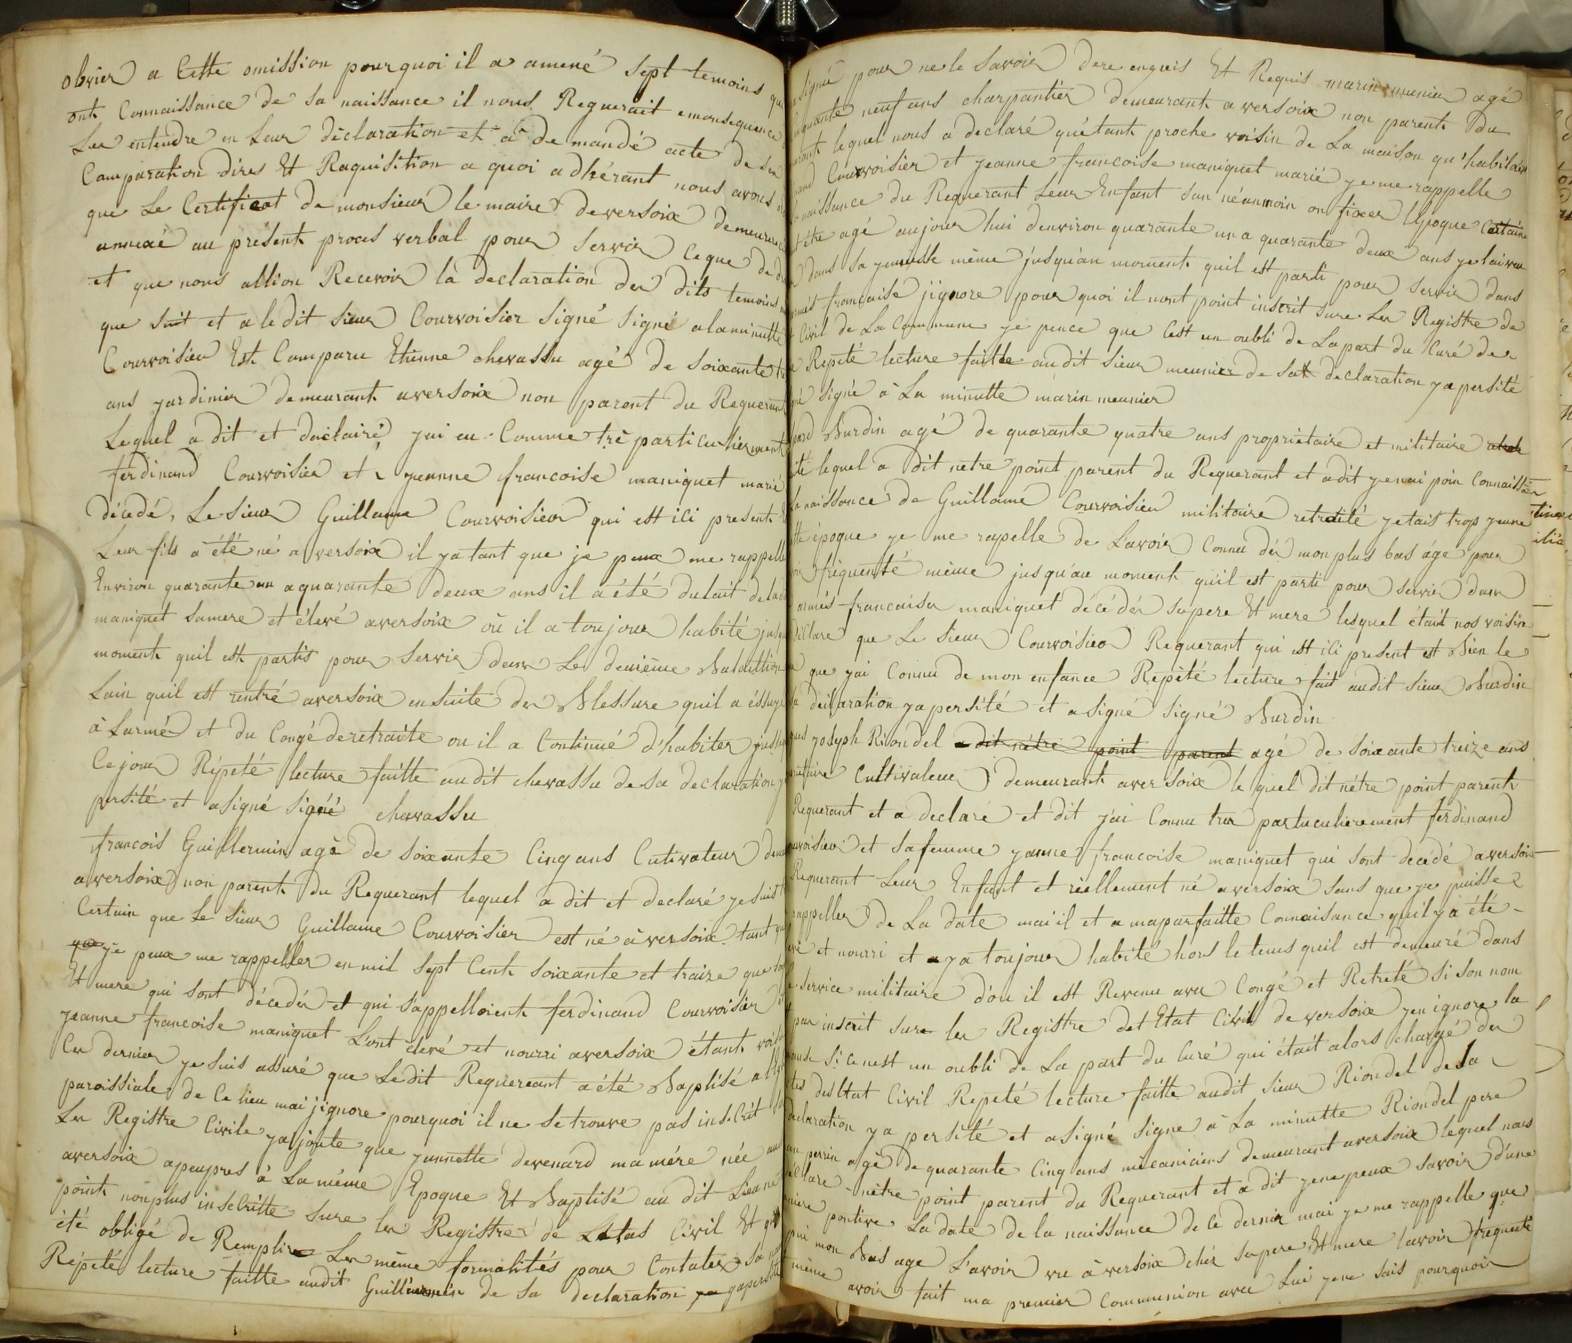 obvier a Cette omission pourquoi il a amené Sept temoins qui
ont Connaissance de sa naissance il nous Requerait emonsequence
Les entendre en Leur déclaration et a demandé acte de sa
Comparation dires Et Requisition a quoi adhérant nous avons
que Le Certificat de monsieur le maire deversoix demeurera
annexé au présent proces verbal pour servir Ceque de
et que nous allion Recevoir la declaration des dits temoins
que suit et a ledit sieur Courvoisier signé signé alaminutte
Courvoisier Est Comparu Etienne chevassu agé de soixante
ans jardinier demeurant aversoix non parent du Requerant
Lequel a dit et déclairé jai eu Comme trè particulierment
ferdinand Courvoisier et jeanne francoise maniquet marié
décédé, Le sieur Guillaume Courvoisier qui est ici present
Leur fils a été né a versoix il ya tant que je peux me rappelle
Environ quarante un aquarante deux ans il a été du lait de la
maniquet samere et élevé aversoix où il a toujour habité jusqu
moment quil est partis pour servir dans Le deuxième Bataillion
Lain quil est rentré aversoix ensuite des Blessure quil a éssuyé
à Larmé et du Congé deretraite ou il a Continué d'habiter jusqu
Cejour Répeté lecture faitte audit chevassu de sa declaration y
persité et asigné signé chevassu
francois Guillermin agé de soixante Cinq ans Cutivateur dem
aversoix non parent du Requerant lequel a dit et declaré je suis
Certain que Le sieur Guillaume Courvoisier est né à versoix tant
que je peux me rappeller en mil sept Cent soixante et traize que
Et mere qui sont décedér et qui s'appelloient ferdinand Courvoisier
jeanne francoise maniquet L'ont élevé et nourri aversoix étant voisin
Ces dernier je suis assuré que Ledit Requereant a été Baptisé
paroissiale de Ce lieu mai j'ignore pourquoi il ne se trouve pas inscrit
Les Registre Civile yajoute que jannette devenard ma mére née
aversoix apeupres à La méme Epoque Et Baptisé au dit Lieu ne
point nonplus inscritte sure les Registre de Letas Civil Et
été obligé de Remplire Les méme formalités pour Contater sa
Répété lecture faitte audit Guillermin de sa declaration ya persité
signé pour ne le savoir dere enquis Et Requis marin meunier agé
cinquante neuf ans charpantier demeurant aversoix non parent du
lequel nous a declaré qu'étant proche voisin de La maison qu'habitais
Courvoisier et jeanne francoise maniquet marié je me rappelle
naissance du Requerant Leur Enfant san néanmoin en fixer L'époque Certaine
être agé aujour'hui denviron quarante un a quarante deux ans je lai vu
dans sa jeunesse même jusqu'au moment quil est parti pour servir dans
francaise j'ignore pour quoi il nont point inscrit sure Les Registre de
Civil de La Commune je pence que C'est un oubli de La part du Curé de
Répété lecture faitte audit sieur meunier de sa declaration ya persité
signé à La minutte marin meunier
Burdin agé de quarante quatre ans propriétaire et militaire
lequel a dit netre point parent du Requerant et adit je nai poin Connaissan
naissance de Guillame Courvoisier militaire retraité jetais trop jeune
époque je me rapelle de Lavoir Connu dès mon plus bas áge pour
friquenté même jusqu'au moment quil est parti pour servir dans
armés francaises maniquet décédés sapere Et mere lesquel étant nos voisin
declare que Le sieur Courvoisier Requerant qui est ici present est Bien le
que jai Connu de mon enfance Répété lecture fait audit sieur Burdin
déclaration yapersité et a signé signé Burdin
joseph Riondel a dit nétre point parent agé de soixante treize ans
Cultivateur demeurant aversoix lequel dit nétre point parent
Requerant et a declaré et dit jai Connu tres partuculierement ferdinand
Courvoisier et safemme jeanne francoise maniquet qui sont decedé aversoix
Requerant Leur Enfant et réellement né aversoix sans que je puisse
rappeller de La date mai il et a maparfaitte Connaisance quil y a été
et nourri et a ya toujour habité hors le tems quil est demeuré dans
service militaire d'ou il est Revenu avec Congé et Retreté si son nom
pas inscrit sure les Registre det Etat Civil de versoix jen ignore la
cause si ce nest un oubli de La part du Curé qui était alors chargé des
destat Civil Répeté lecture faitte audit sieur Riondel desa
declaration ya persité et asigné signe à La minutte Riondel pere
perrin agé de quarante Cinq ans mécaniciens demeurant aversoix lequel nous
déclare nêtre point parent du Requerant et a dit je ne peux savoir d'une
maniere positive La date de la naissance de Ce dernier mai je me rappelle que
mon Bas age L'avoir vu à versoix chés sapere Et mere Lavoir frequenté
même avoir fait ma premier communion avec Lui je ne sais pourquoi